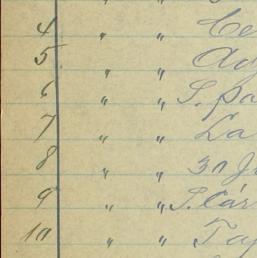 4 " " Ce
5 " " Ay
6 " " S. Pa
7 " " La
8 " " 3a J
9 " " S. Cár
10 " " Tap